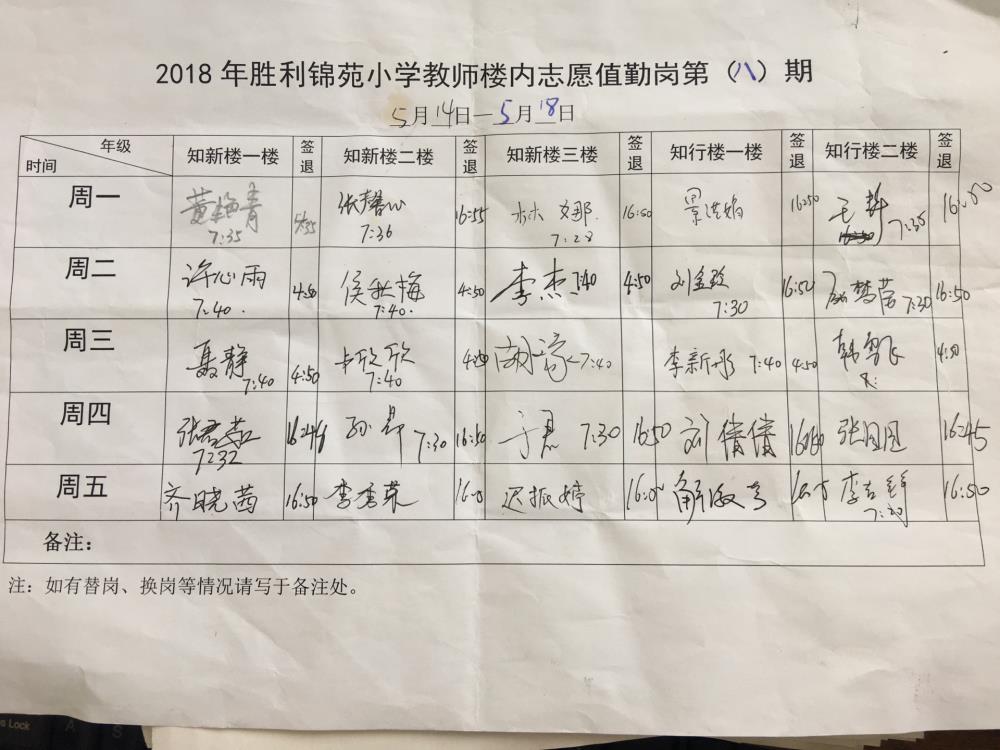 2018年胜利锦苑小学教师楼内志愿值勤岗第（八）期
5月14日—5月18日
年级 时间 知新楼一楼 签退 知新楼二楼 签退 知新楼三楼 签退 知行楼一楼 签退 知行楼二楼 签退
周一 黄艳青 7:35 张馨心 7:36 16:55 林娜 7:28 16:50 景洪娟 16:50 王 7:35 16:50
周二 许心雨 7:40. 4:50 侯秋梅 7:40. 4:50 李杰 7:40 4:50 刘 7:30 16:50 梦茵 7:30 16:50
周三 聂静 7:40 4:50 卢欣欣 7:40 4:50 胡 7:40 李新彤 7:40 4:50 韩 4:50
周四 张 7:32 孙昂 7:30 16:50 于君 7:30 16:50 刘倩倩 张囡囡 16:45
周五 齐晓茜 16:50 李秀荣 迟振婷 解淑 李 16:50
备注：
注：如有替岗、换岗等情况请写于备注处。
s Lock A S